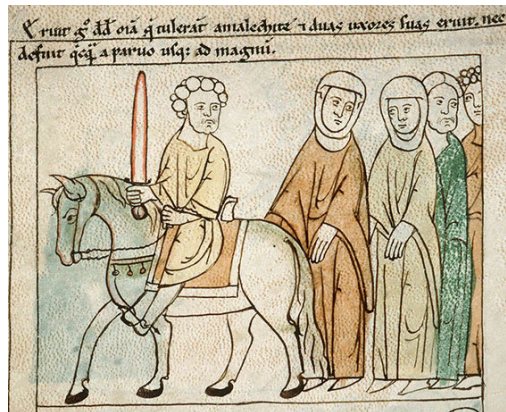 Eruit gͦ dd̄ oīa q̄ tulerāt amalechite ⁊ duas uxores suas eruit. nec
defuit qͥcq̄ a paruo usq: ad magnū.